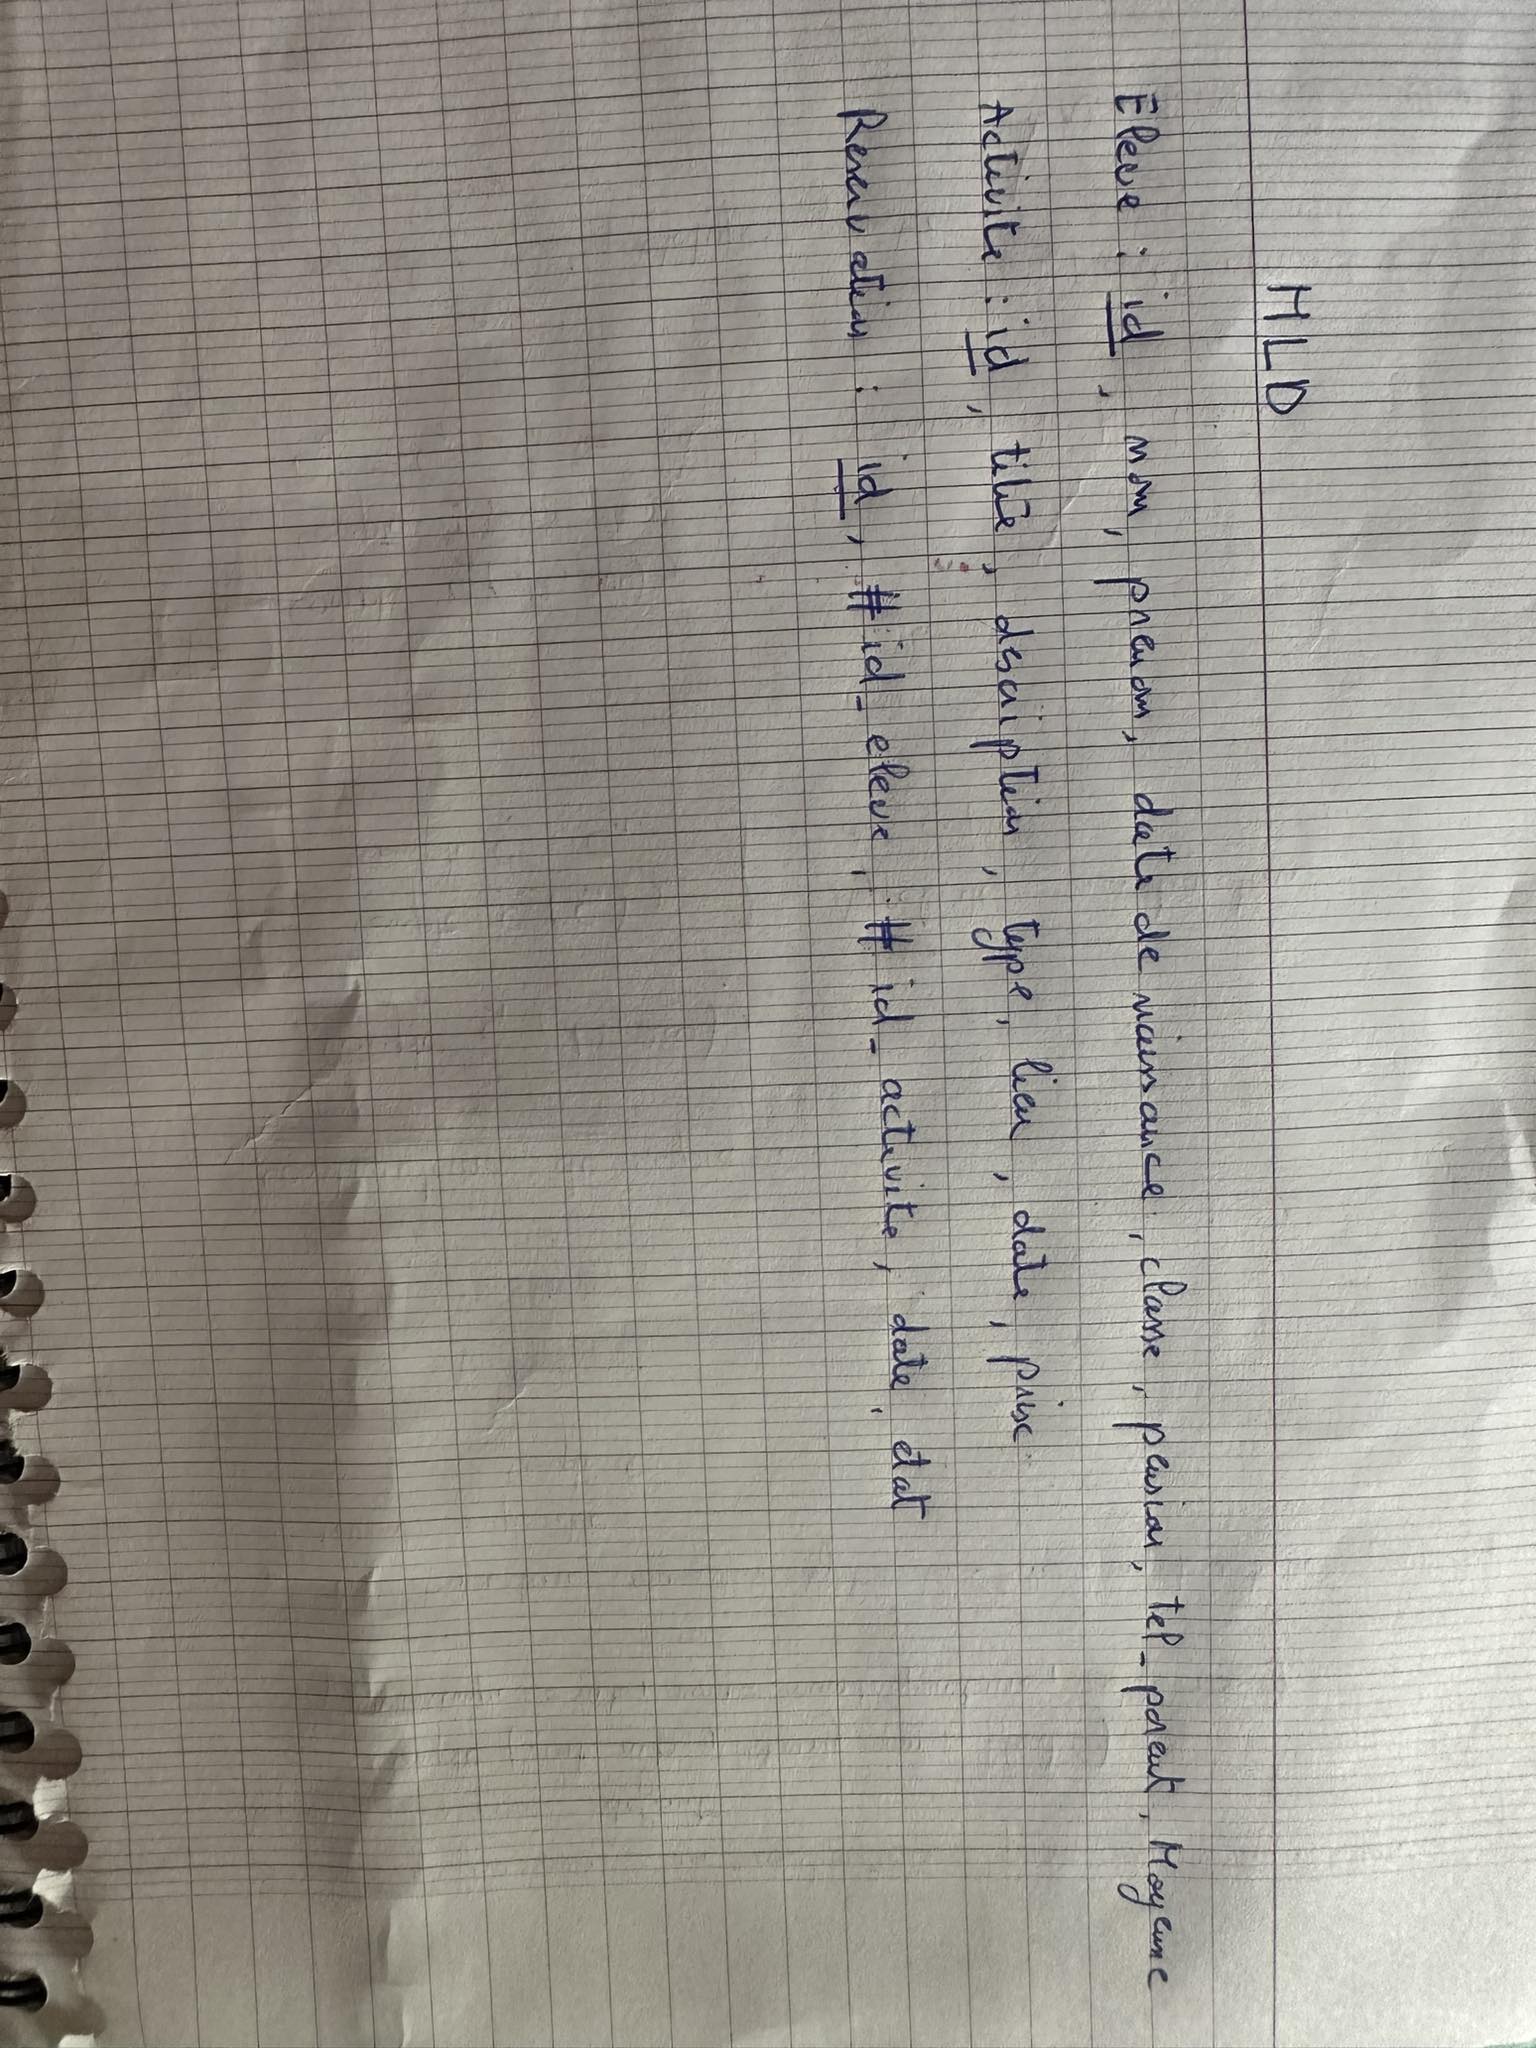 MLD
Eleve : id, nom, prenom, date de naissance, classe, pension, tel_parent, Moyenne
Activite : id, titre, description, type, lieu, date, prix
Reservation : id, #id_eleve, #id_activite, date, etat